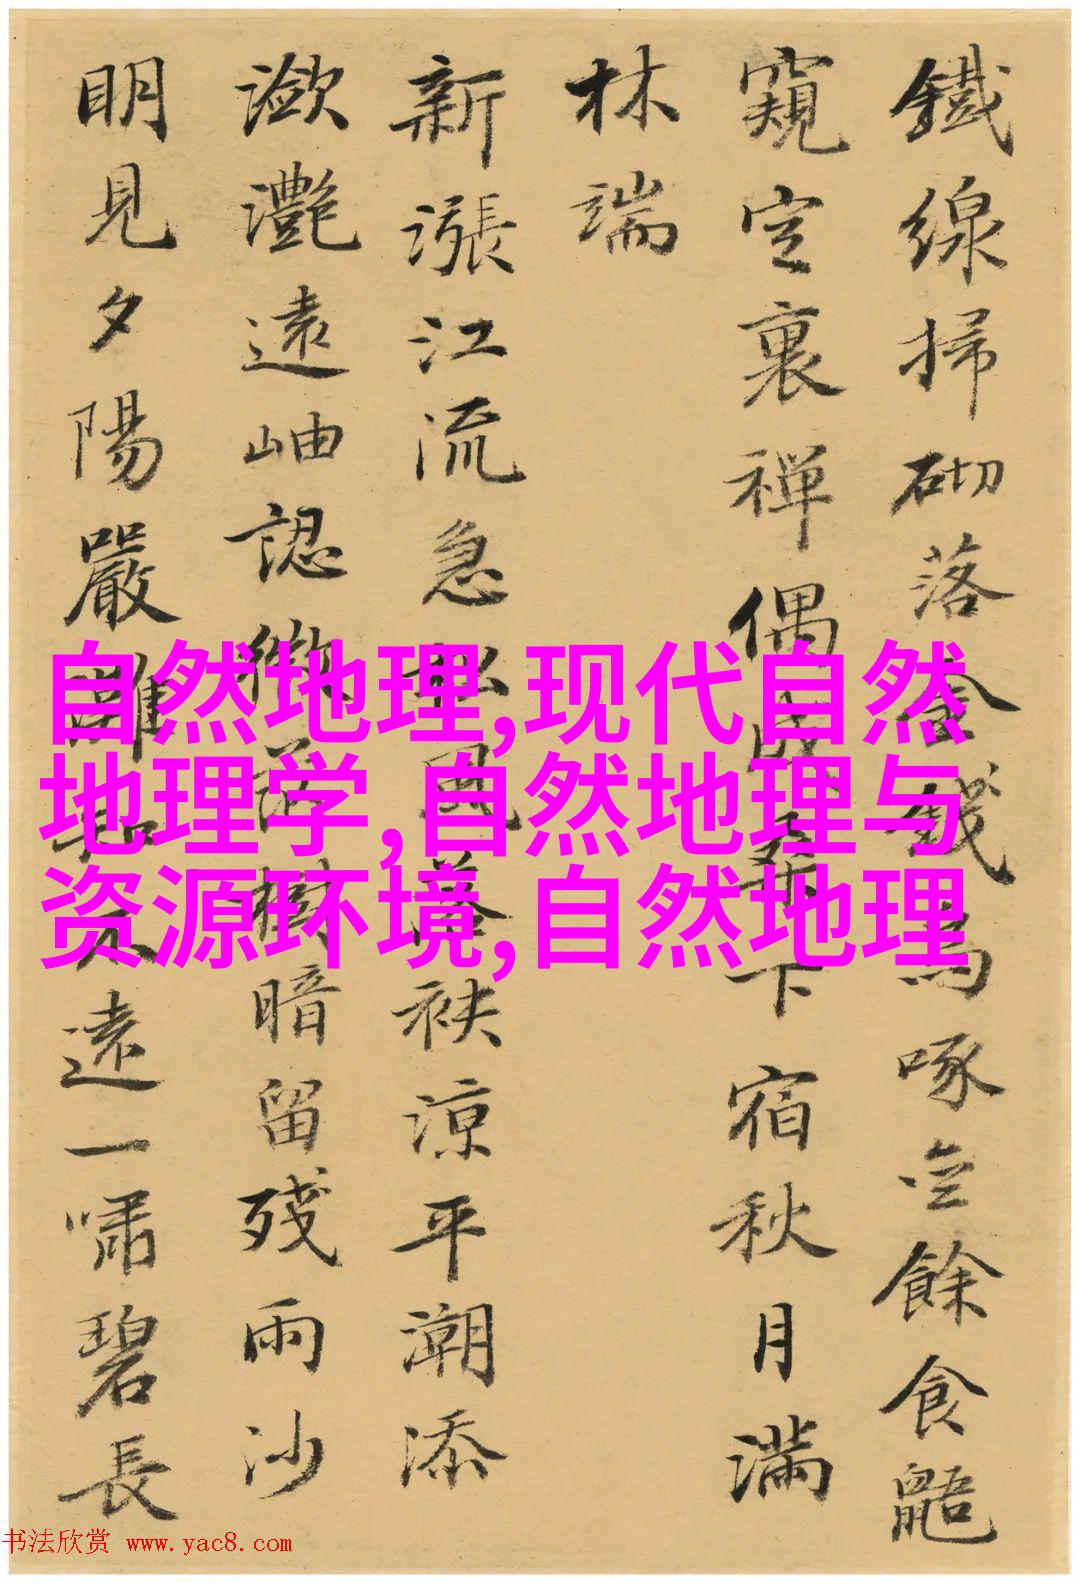 鐵線掃砌落金錢鳥啄空餘食鼯
窺定裏禪偶桑下宿秋月滿
林端
新漲江流急松風落袂涼平潮添
瀲灩遠岫認微茫樹暗留殘雨沙
明見夕陽嚴灘知不遠一嘯碧長
自然地理,现代自然
地理学,自然地理与
资源环境,自然地理
书法欣赏 www.yac8.com